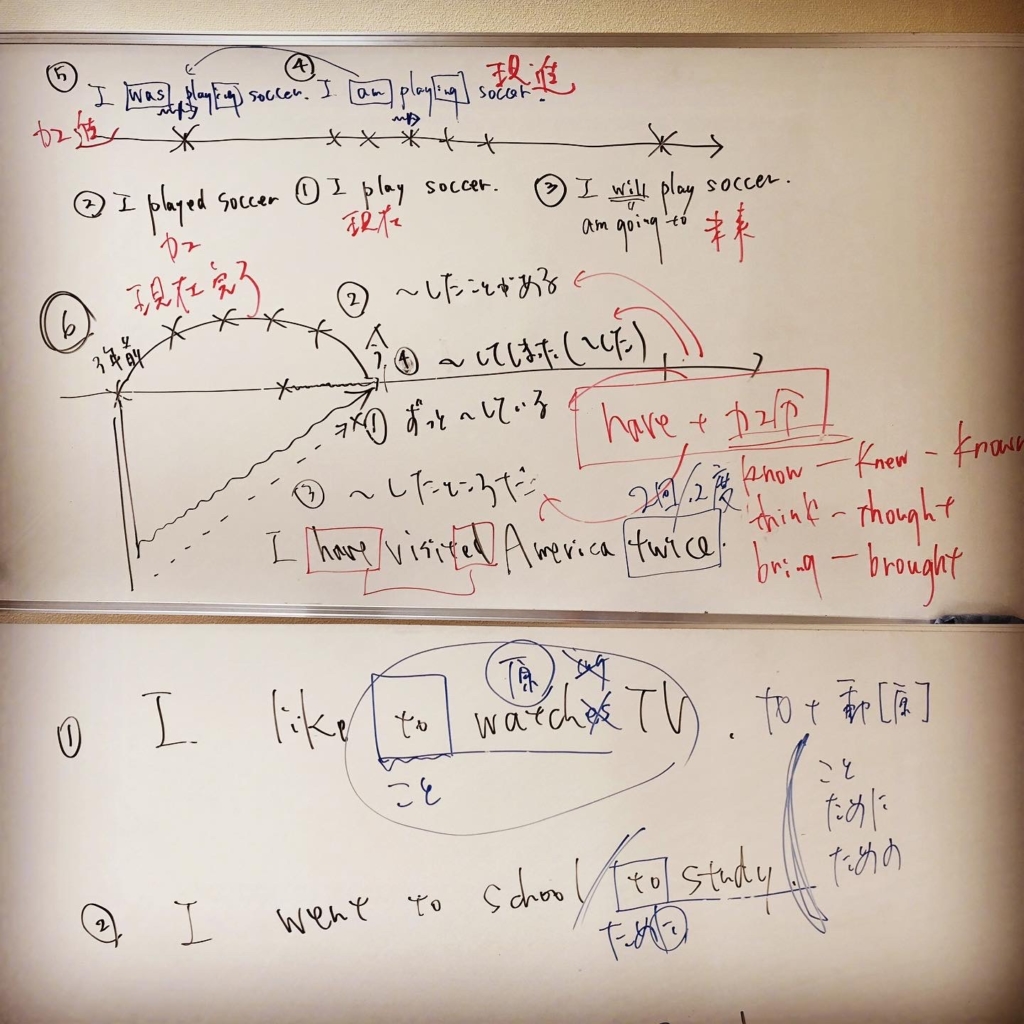 ⑤ I was playing soccer.
④ I am playing soccer.
現進
カコ進
② I played soccer
カコ
① I play soccer.
現在
③ I will play soccer.
am going to
未来
⑥
現在完了
3年前
② ~したことがある
今
④ ~してしまった(~した)
① ずっと~している
have + カコ分
③ ~したところだ
2回/2度
I have visited America twice.
know - knew - known
think - thought
bring - brought
① I like to watches TV.
原
ing
こと
to + 動[原]
こと
ために
ための
② I went to school to study.
ために